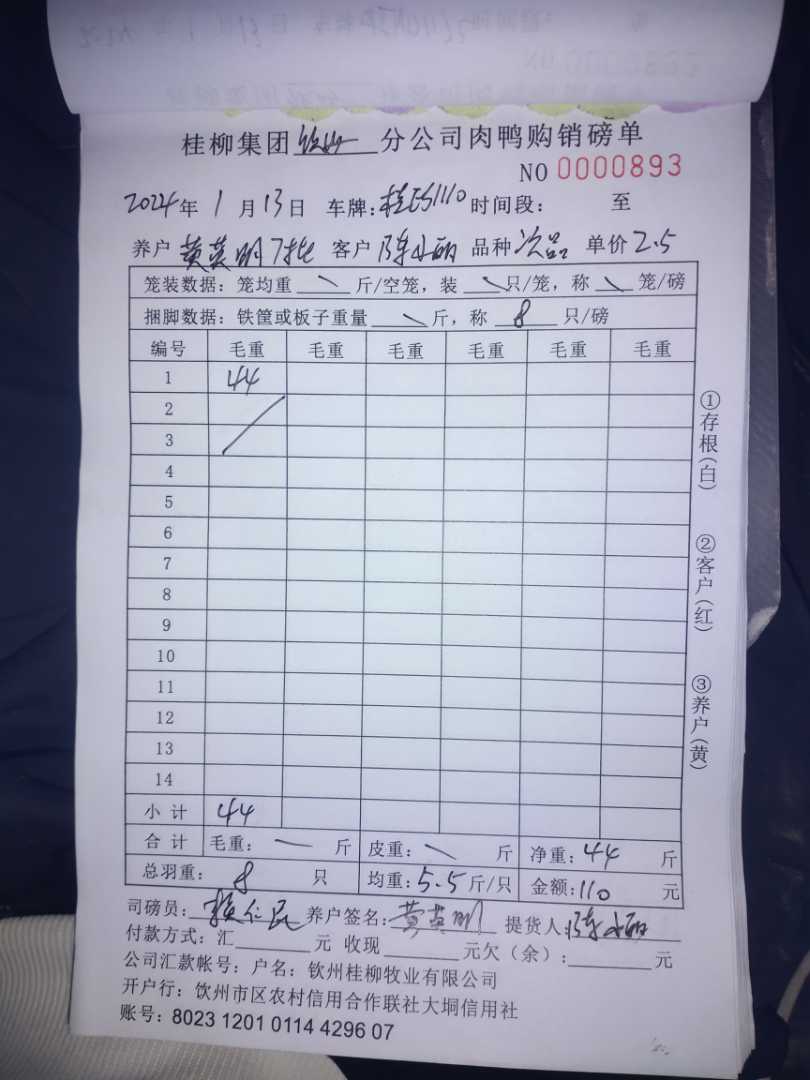 桂柳集团 钦州 分公司肉鸭购销磅单
NO 0000893
2024年 1 月 13日 车牌:桂E51110 时间段: 至
养户 黄英明 客户 陈小丽 品种 次品 单价 2.5
笼装数据:笼均重 \ 斤/空笼,装 \ 只/笼,称 \ 笼/磅
捆脚数据:铁筐或板子重量 \ 斤,称 8 只/磅
编号 毛重 毛重 毛重 毛重 毛重 毛重
1 44
2
3
4
5
6
7
8
9
10
11
12
13
14
小计 44
合计 毛重: — 斤 皮重: \ 斤 净重:44 斤
总羽重: 8 只 均重:5.5斤/只 金额:110 元
司磅员: 赖仁民 养户签名:黄英明 提货人:陈小丽
付款方式:汇 元 收现 元欠(余): 元
公司汇款帐号:户名:钦州桂柳牧业有限公司
开户行:饮州市区农村信用合作联社大垌信用社
账号:8023 1201 0114 4296 07
①存根(白)
②客户(红)
③养户(黄)